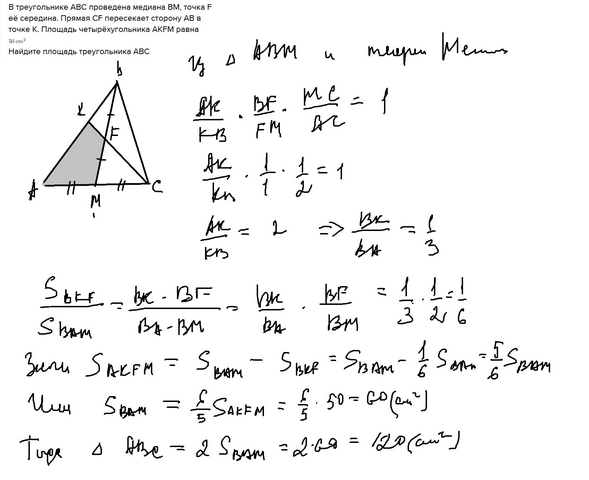 В треугольнике ABC проведена медиана BM, точка F
её середина. Прямая CF пересекает сторону AB в
точке K. Площадь четырёхугольника AKFM равна
50 cm²
Найдите площадь треугольника ABC
Из △ ABM и теорем
AK/KB · BF/FM · MC/AC = 1
AK/KB · 1/1 · 1/2 = 1
AK/KB = 2 => BK/BA = 1/3
B
K
F
A
M
C
S BKF / S BAM = BK · BF / BA · BM = BK/BA · BF/BM = 1/3 · 1/2 = 1/6
S AKFM = S BAM − S BKF = S BAM − 1/6 S BAM = 5/6 S BAM
Или S BAM = 6/5 S AKFM = 6/5 · 50 = 60 (см²)
Тогда △ ABC = 2 S BAM = 2·60 = 120 (см²)